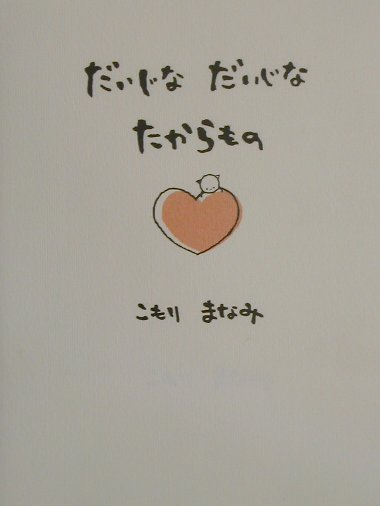 だいじな だいじな
たからもの
こもり まなみ